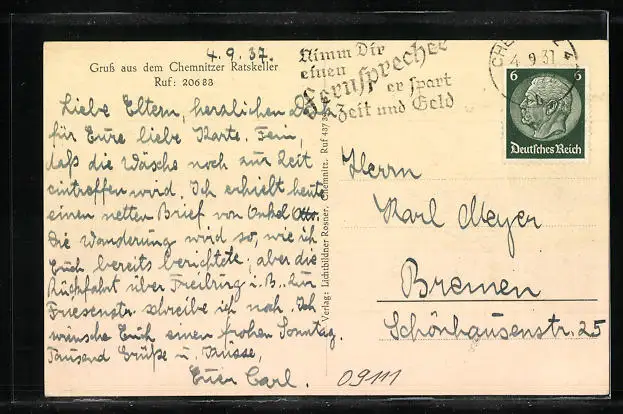 4.9.37.
Gruß aus dem Chemnitzer Ratskeller
Ruf: 20683
Liebe Eltern, herzlichen Dank
für Eure liebe Karte. Fein,
daß die Wäsche noch zur Zeit
eintreffen wird. Ich erhielt heute
einen netten Brief von Onkel Otto.
Die Wanderung wird so, wie ich
Euch bereits berichtete, aber die
Rückfahrt über Freiburg i. B.. Zur
Friesenstr. schreibe ich noch. Ich
wünsche Euch einen frohen Sonntag.
Tausend Grüße u. Küsse,
Euer Carl.
Verlag: Lichtbildner Rosner, Chemnitz. Ruf
Nimm Dir
einen
Fernsprecher
er spart
Zeit und Geld
4.9.37
6 6
Deutsches Reich
Herrn
Karl Meyer
Bremen
Schönhausenstr. 25
09111